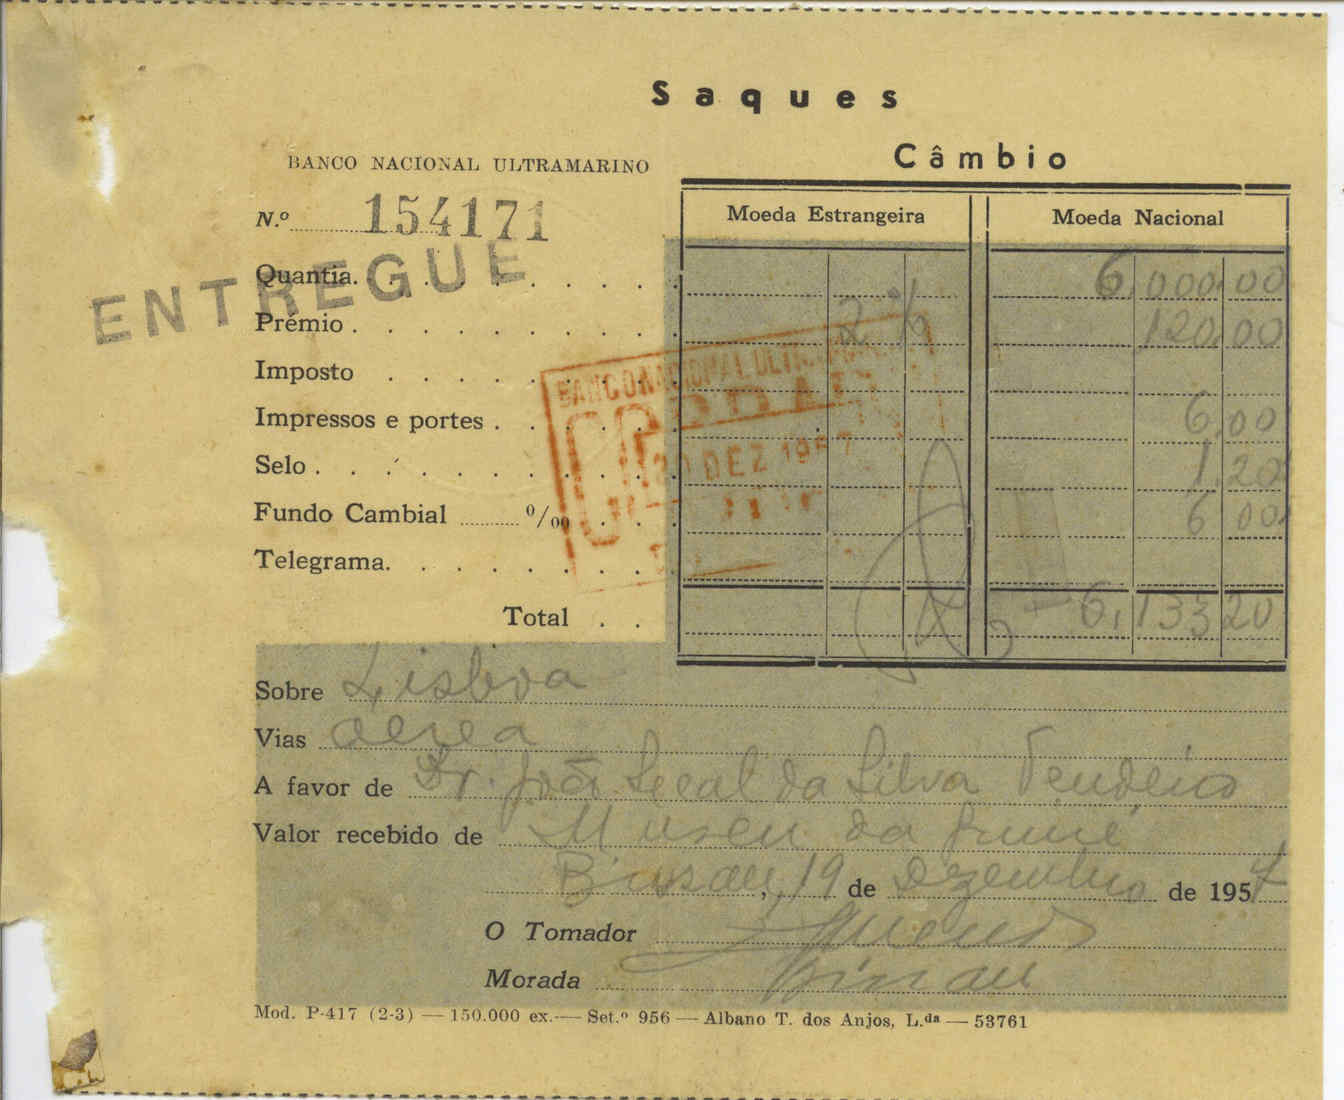 Saques
Câmbio
BANCO NACIONAL ULTRAMARINO
N.º 154171
Moeda Estrangeira Moeda Nacional
ENTREGUE
Quantia. 6,000,00
Prémio 2 % 120,00
Imposto
Impressos e portes 6,00
Selo 1,20
Fundo Cambial º/₀₀ 6,00
Telegrama.
Total 6,133,20
BANCO NACIONAL ULTRAMARINO
DEZ 1957
Sobre Lisboa
Vias aerea
A favor de Dr. João Leal da Silva Tendeiro
Valor recebido de Museu da Guiné
Bissau, 19 de Dezembro de 1957
O Tomador
Morada Bissau
Mod. P-417 (2-3) — 150.000 ex. — Set.º 956 — Albano T. dos Anjos, L.da — 53761